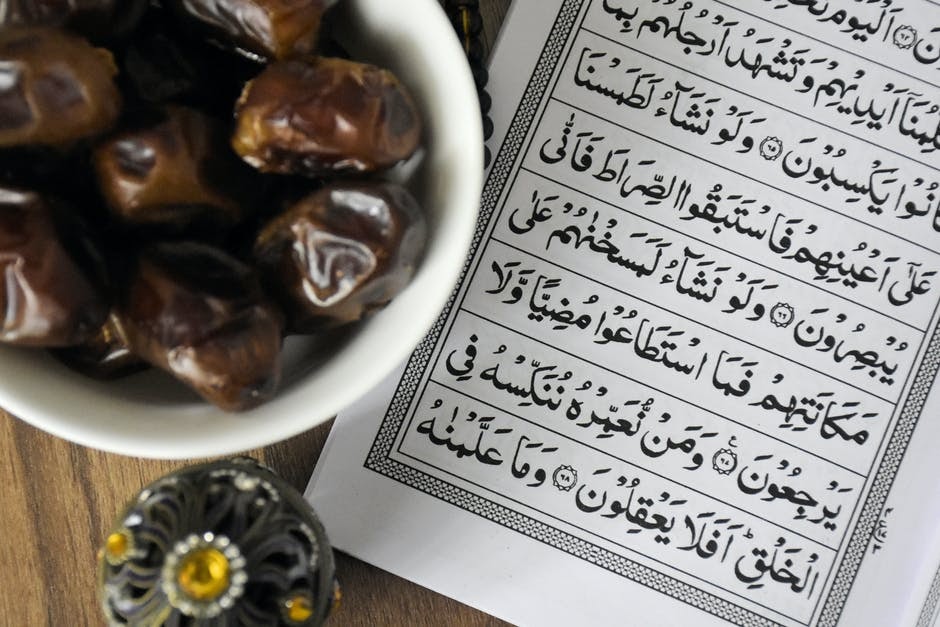 اَلْيَوْمَ
اَيْدِيْهِمْ وَتَشْهَدُ اَرْجُلُهُمْ
كَانُوْا يَكْسِبُوْنَ ۝٦٥ وَلَوْ نَشَآءُ لَطَمَسْنَا
عَلٰٓى اَعْيُنِهِمْ فَاسْتَبَقُوا الصِّرَاطَ فَاَنّٰى
يُبْصِرُوْنَ ۝٦٦ وَلَوْ نَشَآءُ لَمَسَخْنٰهُمْ عَلٰى
مَكَانَتِهِمْ فَمَا اسْتَطَاعُوْا مُضِيًّا وَّلَا
يَرْجِعُوْنَ ۝٦٧ وَمَنْ نُّعَمِّرْهُ نُنَكِّسْهُ فِى
الْخَلْقِ ؕ اَفَلَا يَعْقِلُوْنَ ۝٦٨ وَمَا عَلَّمْنٰهُ